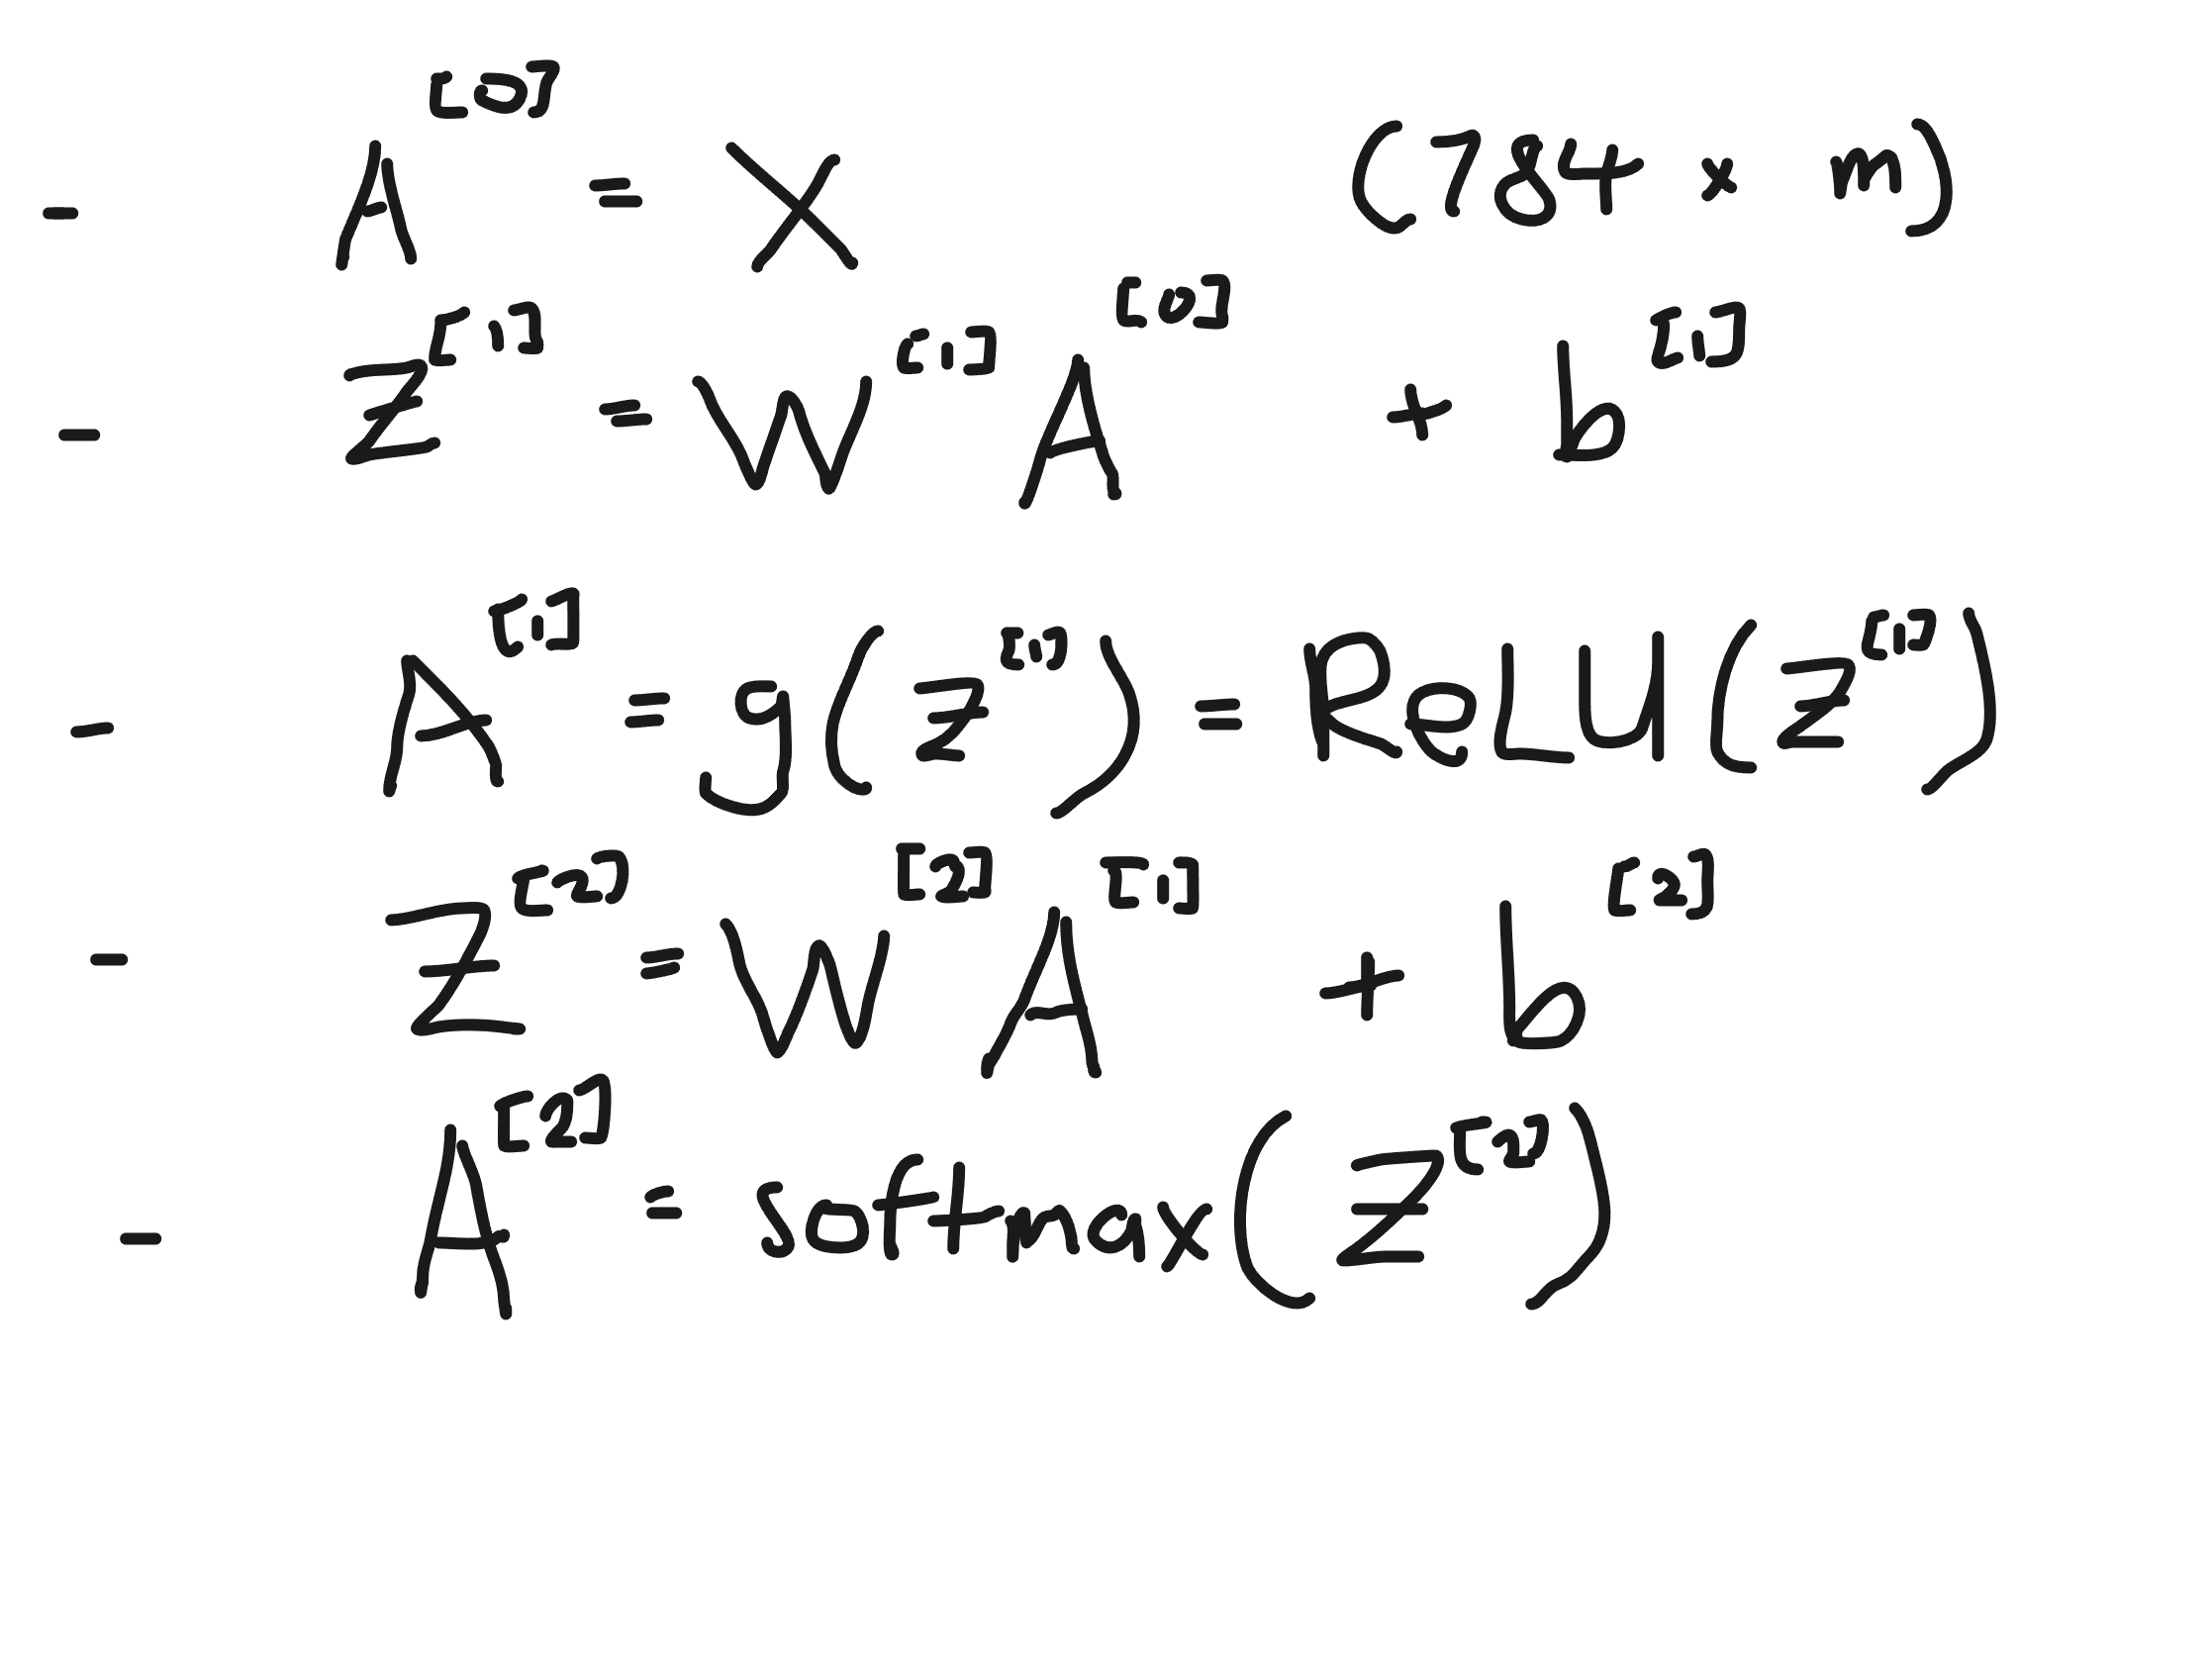 - A^[0] = X (784 x m)
- Z^[1] = W^[1] A^[0] + b^[1]
- A^[1] = g(z^[1]) = ReLU(z^[1])
- Z^[2] = W^[2] A^[1] + b^[2]
- A^[2] = softmax(Z^[2])